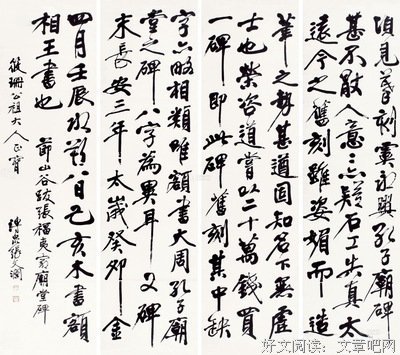 頃見摹刻虞永興孔子廟碑
甚不厭人意意亦疑石工失真太
遠今之舊刻雖姿媚而造
筆之勢甚遒固知名下無虛
士也榮咨道嘗以二十萬錢買
一碑即此碑舊刻其中缺
字亦略相類唯額書大周孔子廟
堂之碑八字為異耳又碑
末長安三年太歲癸卯金
四月壬辰水朔八日己亥木書額
相王書也 節山谷跋張福夷家廟堂碑
筱珊公祖大人正寶
好文阅读:文章吧网